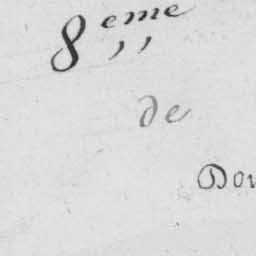 8eme
de
Dou